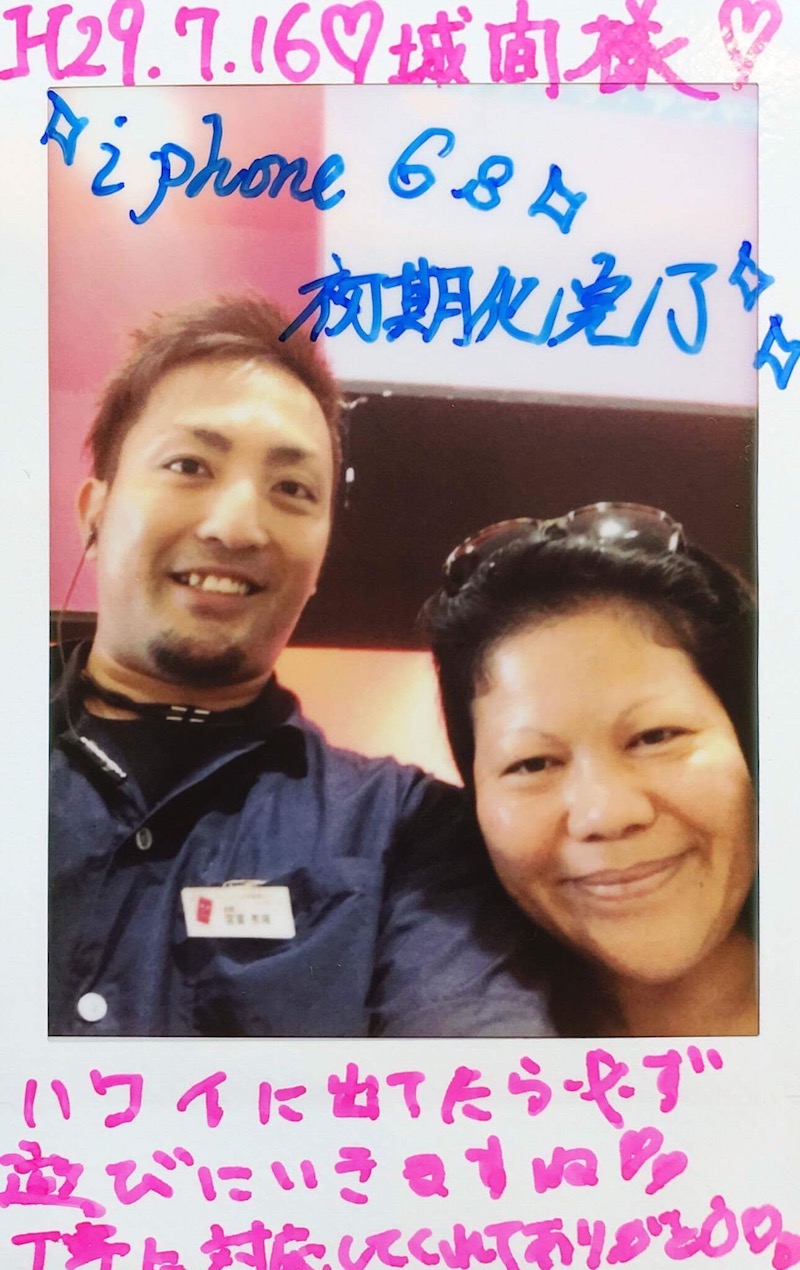 H29.7.16♡城間様♡
iphone 6s
初期化完了
ハワイに出てたら必ず
遊びにいきますね♡
丁寧に対応してくれてありがとう♡